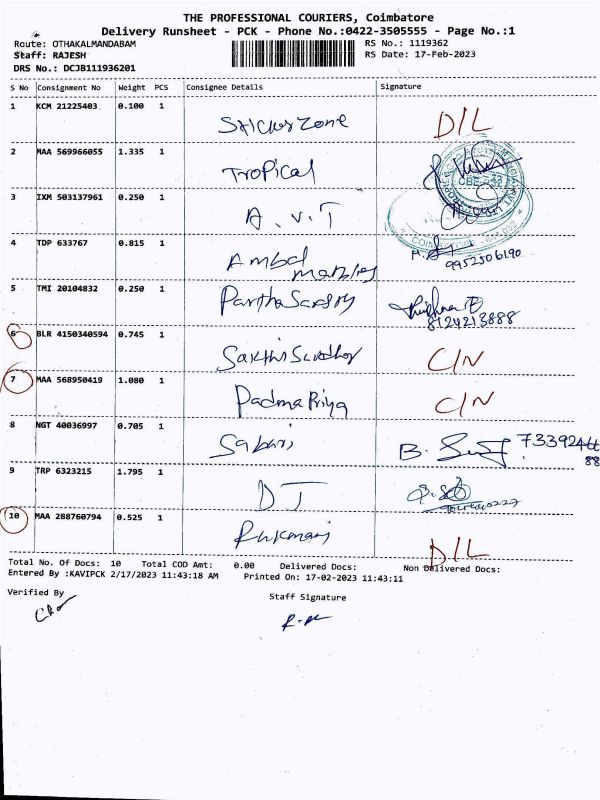 THE PROFESSIONAL COURIERS, Coimbatore
Delivery Runsheet - PCK - Phone No.:0422-3505555 - Page No.:1
Route: OTHAKALMANDABAM RS No.: 1119362
Staff: RAJESH RS Date: 17-Feb-2023
DRS No.: DCJB111936201
S No Consignment No Weight PCS Consignee Details Signature
1 KCM 21225403 0.100 1 Sticker Zone D/L
2 MAA 569966055 1.335 1 Tropical
3 IXM 503137961 0.250 1 A.V.T
4 TDP 633767 0.815 1 Ambal
marbles 9952506190
5 TMI 20104832 0.250 1 Parthasarathy
8124213888
6 BLR 4150340594 0.745 1 C/N
7 MAA 568950419 1.080 1 Padma Priya C/N
8 NGT 40036997 0.705 1 Sabari B.
88
9 TRP 6323215 1.795 1 DJ
10 MAA 288760794 0.525 1 Rukmani D/L
Total No. Of Docs: 10 Total COD Amt: 0.00 Delivered Docs: Non Delivered Docs:
Entered By :KAVIPCK 2/17/2023 11:43:18 AM Printed On: 17-02-2023 11:43:11
Verified By Staff Signature